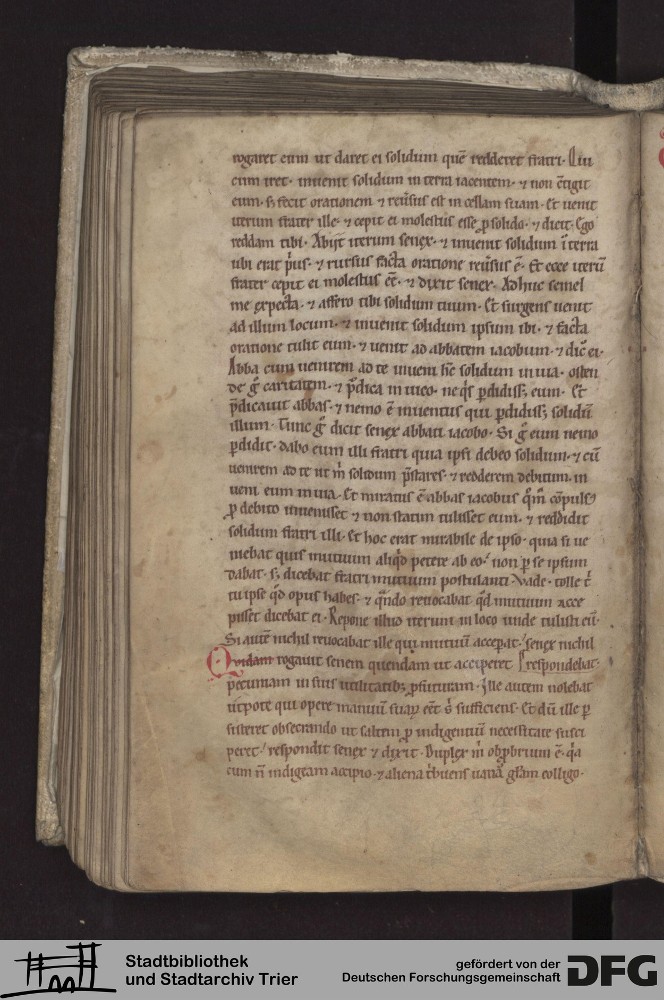 rogaret eum ut daret ei solidum quē redderet fratri. Qui
cum iret. inuenit solidum in terra iacentem. ⁊ non cōtigit
eum. sꝫ fecit orationem ⁊ reūsus est in cellam suam. Et uenit
iterum frater ille. ⁊ cepit ei molestus esse ꝑ solido. ⁊ dicit. Ego
reddam tibi. Abijt iterum senex. ⁊ inuenit solidum ī terra
ubi erat p̄us. ⁊ rursus facta oratione reūsus ē. Et ecce iterū
frater cepit ei molestus eē. ⁊ dixit senex. Adhuc semel
me expecta. ⁊ affero tibi solidum tuum. Et surgens uenit
ad illum locum. ⁊ inuenit solidum ipsum ibi. ⁊ facta
oratione tulit eum. ⁊ uenit ad abbatem iacobum. ⁊ dic̄ ei.
Abba cum uenirem ad te inueni hc̄ solidum in uia. osten
de g̊ caritatem. ⁊ p̄dica in uico. ne q̇s ꝑdidissꝫ eum. Et
p̄dicauit abbas. ⁊ nemo ē inuentus qui ꝑdidissꝫ solidū
illum. Tunc g̊ dicit senex abbati iacobo. Si g̊ eum nemo
ꝑdidit. dabo eum illi fratri quia ipsi debeo solidum. ⁊ cū
uenirem ad te ut m̄ solidum p̄stares. ⁊ redderem debitum. in
ueni eum in uia. Et miratus ē abbas iacobus qm̄ cōpulsꝰ
ꝑ debito inuenisset ⁊ non statim tulisset eum. ⁊ reddidit
solidum fratri illi. Et hoc erat mirabile de ipso. quia si ue
niebat quis mutuum aliqd̄ petere ab eo. non ꝑ se ipsum
dabat. sꝫ dicebat fratri mutuum postulanti. Vade. tolle t̄
tu ipse qd̄ opus habes. ⁊ qn̄do reuocabat qd̄ mutuum acce
pisset dicebat ei. Repone illud iterum in loco unde tulisti eū.
Si autē nichil reuocabat ille qui mutuū acceꝑat. senex nichil
Quidam rogauit senem quendam ut acciperet respondebat.
pecuniam in suis utilitatibꝫ ꝓfuturam. Ille autem nolebat
utpote qui opere manuū suaꝝ eēt s̄ sufficiens. Et dū ille ꝑ
sisteret obsecrando ut saltem ꝑ indigentiū necessitate susci
peret. respondit senex ⁊ dixit. Duplex m̄ obꝓbrium ē. qa
cum n̄ indigeam accipio. ⁊ aliena t̄buens uanā gl̄am colligo.
Stadtbibliothek
und Stadtarchiv Trier
gefördert von der
Deutschen Forschungsgemeinschaft
DFG